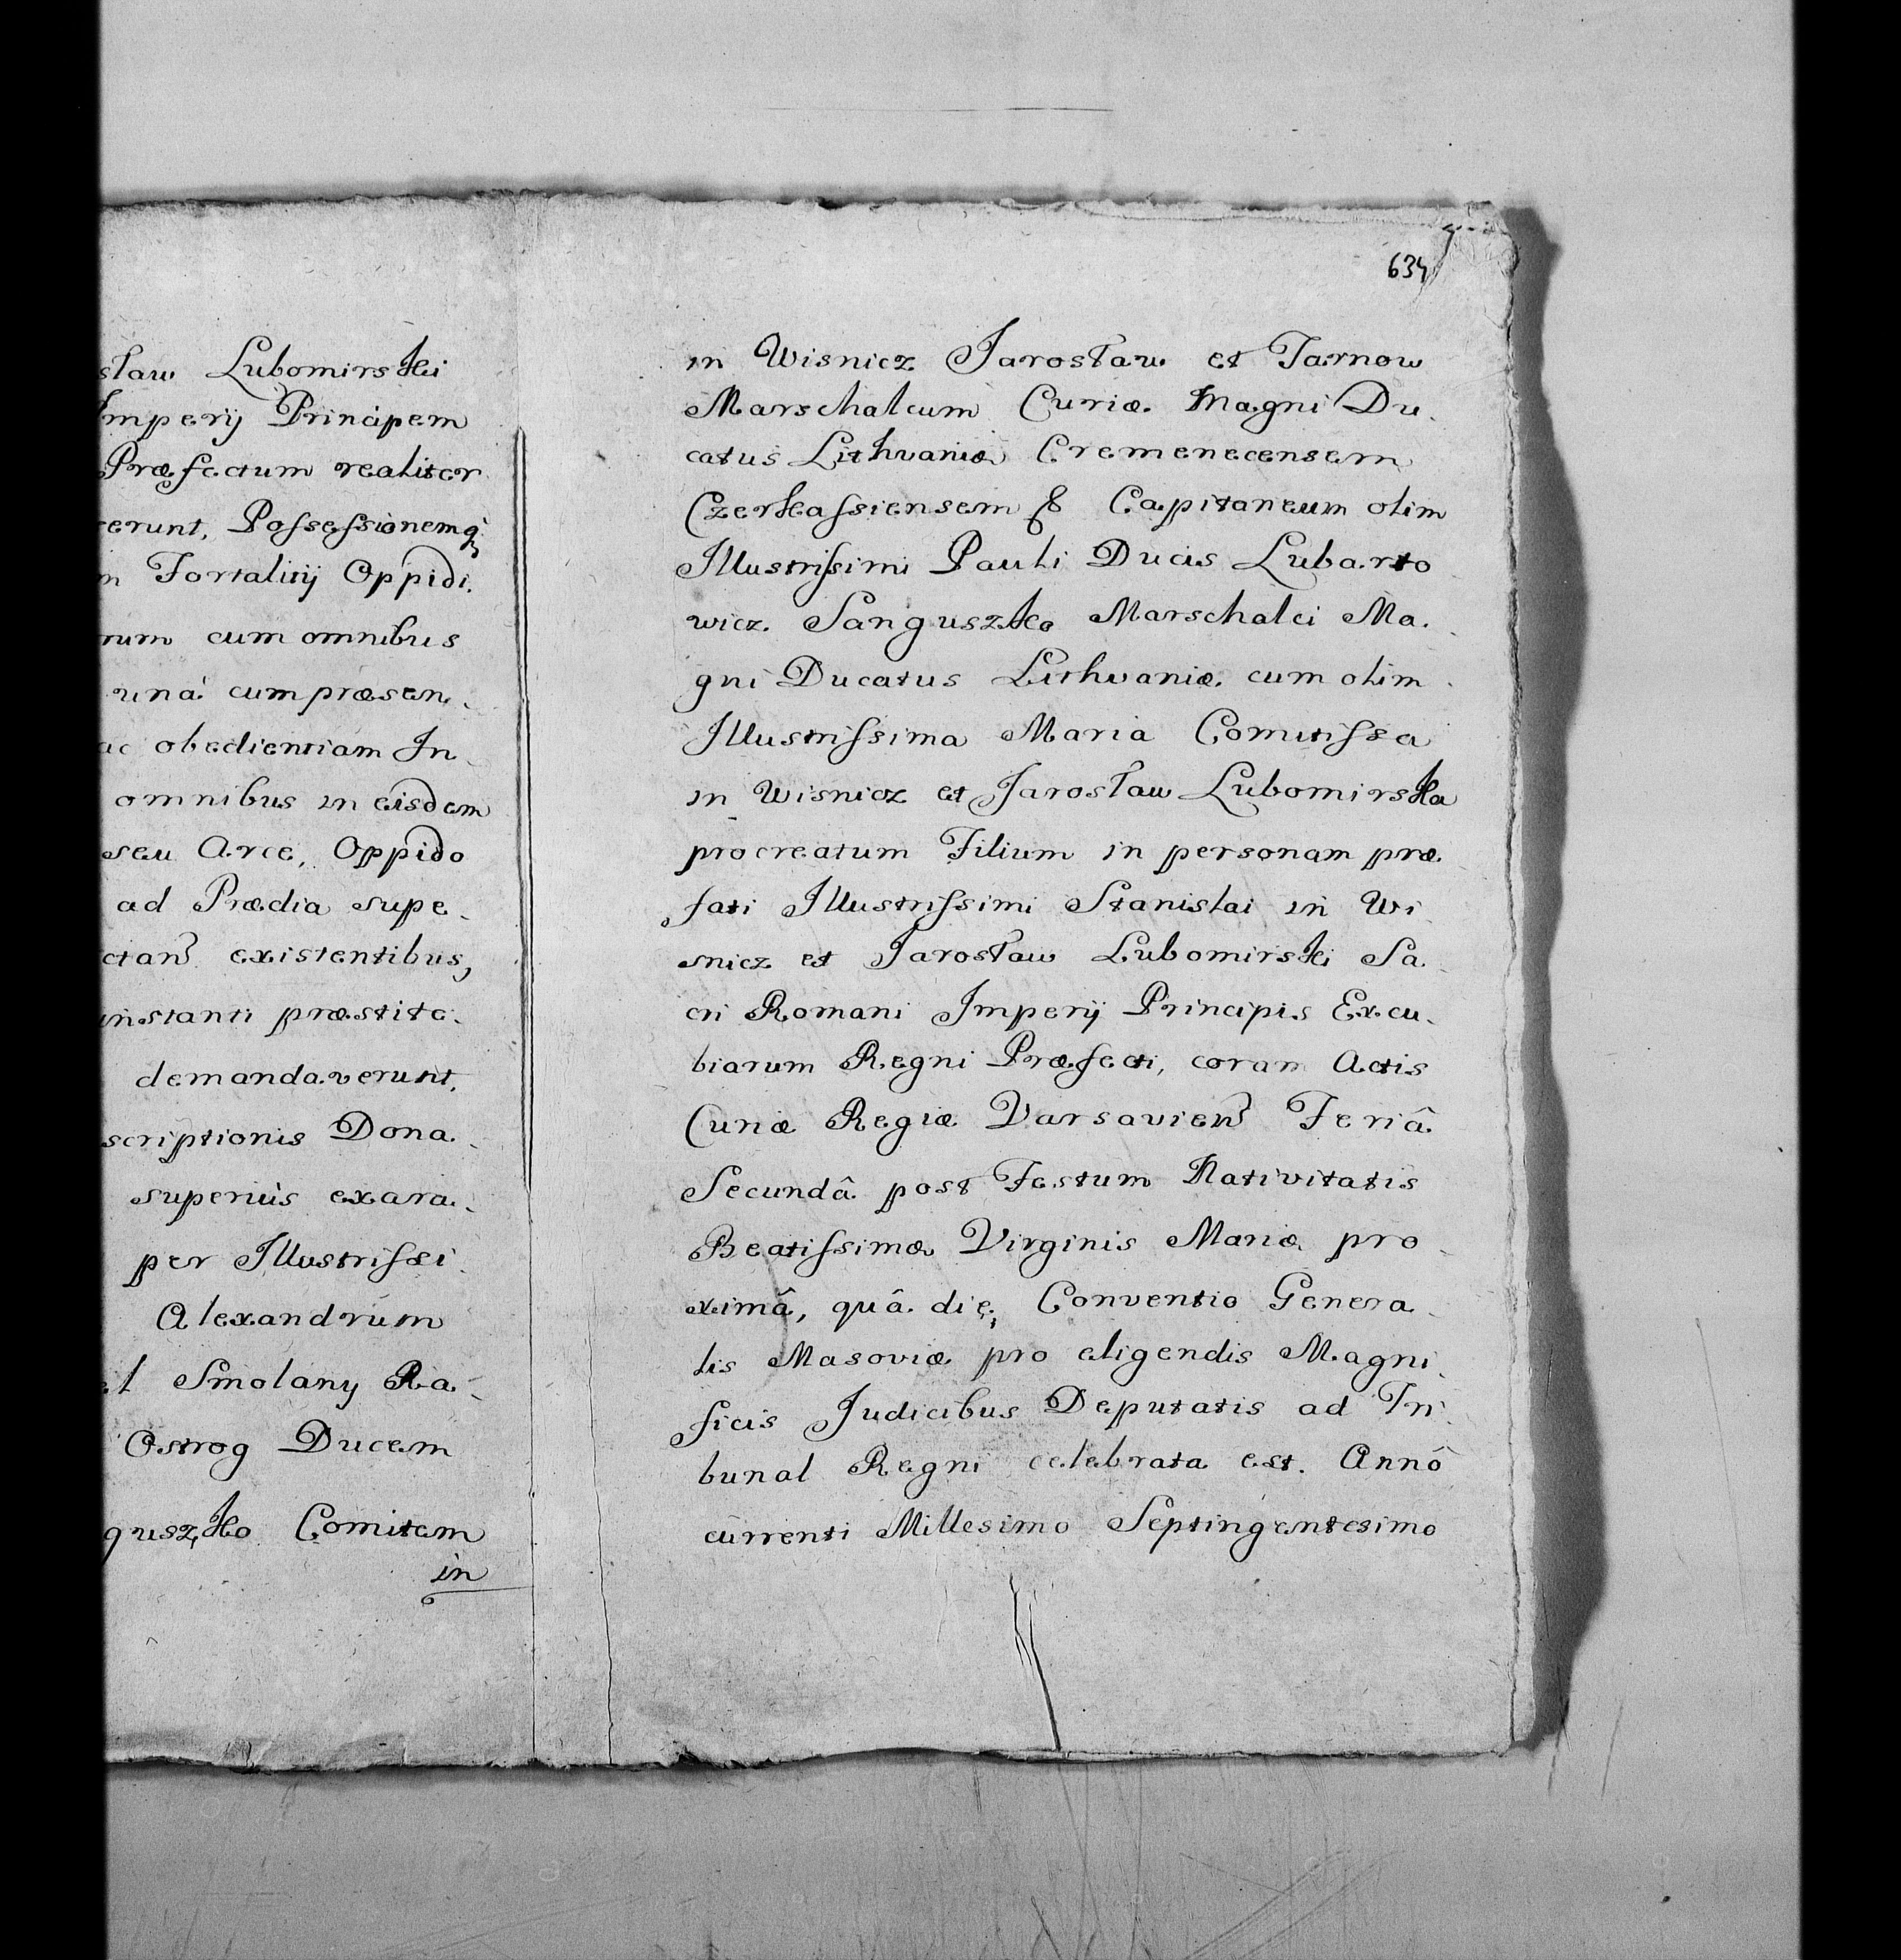 sław Lubomirski
Imperij Principem
Præfectum realiter
erunt, Possessionemq;
Fortalitij Oppidi.
cum omnibus
unà cum præsen-
ac obedientiam In-
omnibus in eisdem
seu Arce, Oppido
ad Prædia supe-
existentibus,
instanti præstite-
demandaverunt.
scriptionis Dona-
superiùs exara-
per Illustrissi-
Alexandrum
Smolany Ra-
Ostrog Ducem
guszko Comitem
in
634
in Wisnicz Jarosław et Tarnow
Marschalcum Curiæ Magni Du-
catus Lithvaniæ Cremenecensem
Czerkassiensem & Capitaneum olim
Illustrissimi Pauli Ducis Lubarto
wicz Sanguszko Marschalci Ma-
gni Ducatus Lithvaniæ cum olim
Illustrissima Maria Comitissa
in Wisnicz et Jarosław Lubomirska
procreatum Filium in personam præ
fati Illustrissimi Stanislai in Wi-
snicz et Jarosław Lubomirski Sa-
cri Romani Imperij Principis Excu-
biarum Regni Præfecti, coram Actis
Curiæ Regiæ Varsavien Feriâ
Secundâ post Festum Nativitatis
Beatissimæ Virginis Mariæ pro-
ximâ, quâ die, Conventio Genera-
lis Masoviæ pro eligendis Magni-
ficis Judicibus Deputatis ad Tri-
bunal Regni celebrata est. Annô
currenti Millesimo Septingentesimo